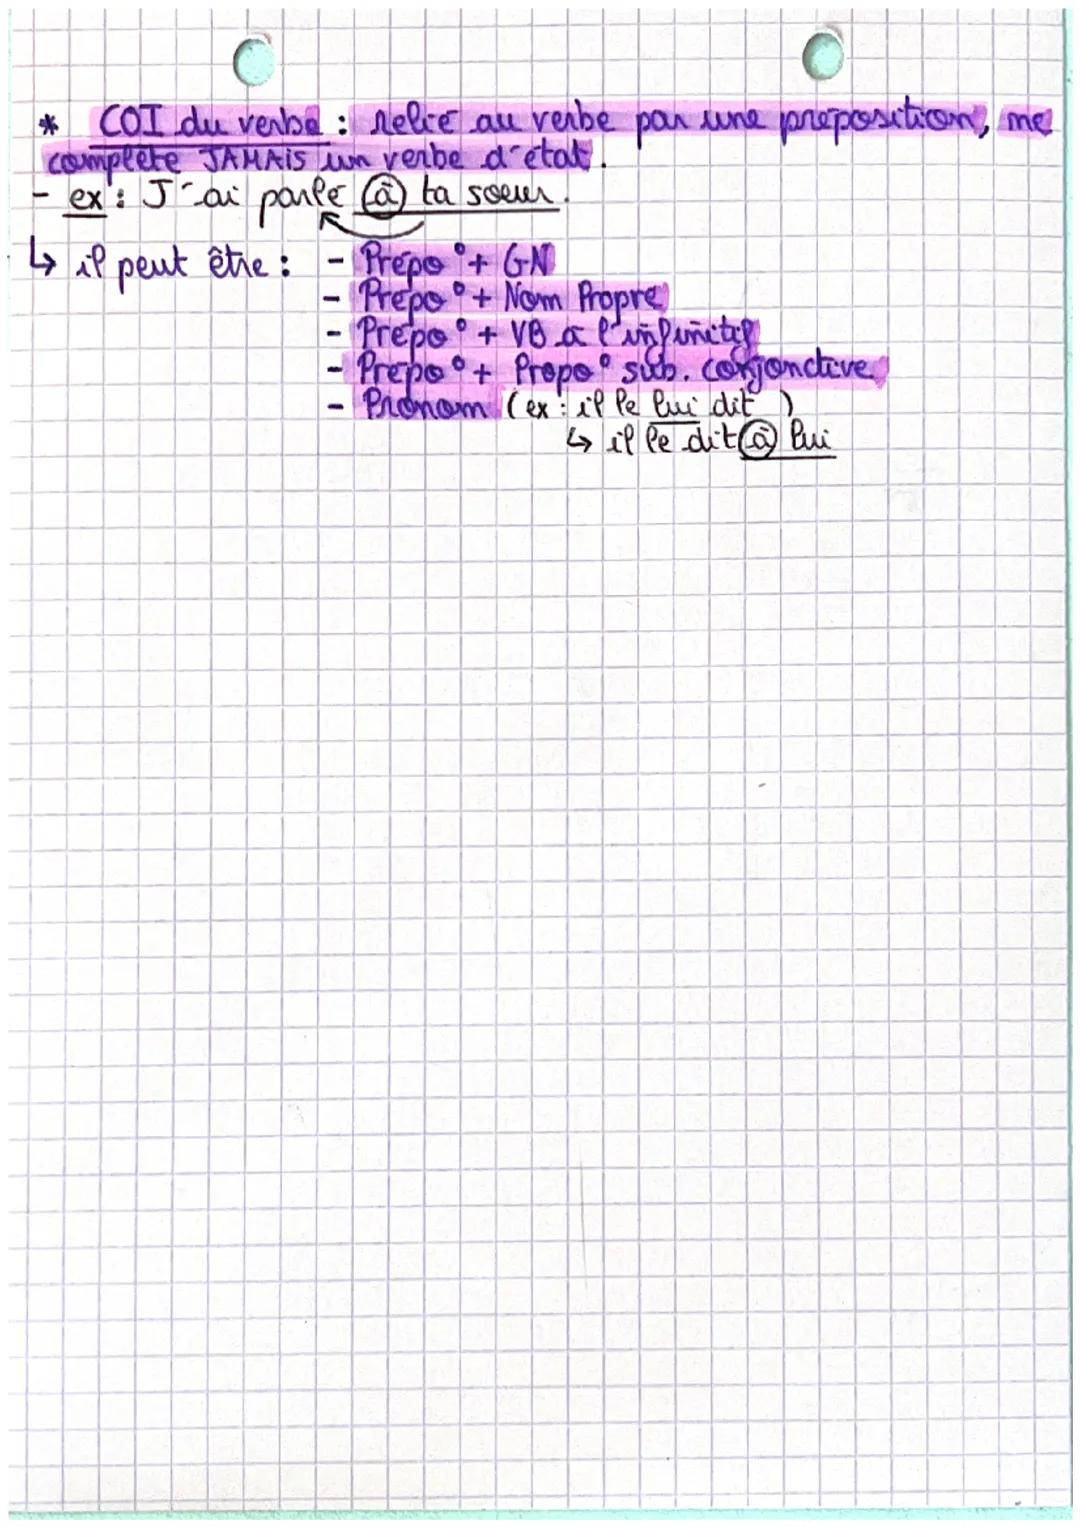 * COI du verbe : relié au verbe par une préposition, ne
complète JAMAIS un verbe d'état.
- ex : J'ai parlé à ta soeur.
↳ il peut être : - Prépo° + GN
- Prépo° + Nom Propre
- Prépo° + VB à l'infinitif
- Prépo° + Propo° sub. conjonctive
- Pronom (ex : il le lui dit )
↳ il le dit à lui